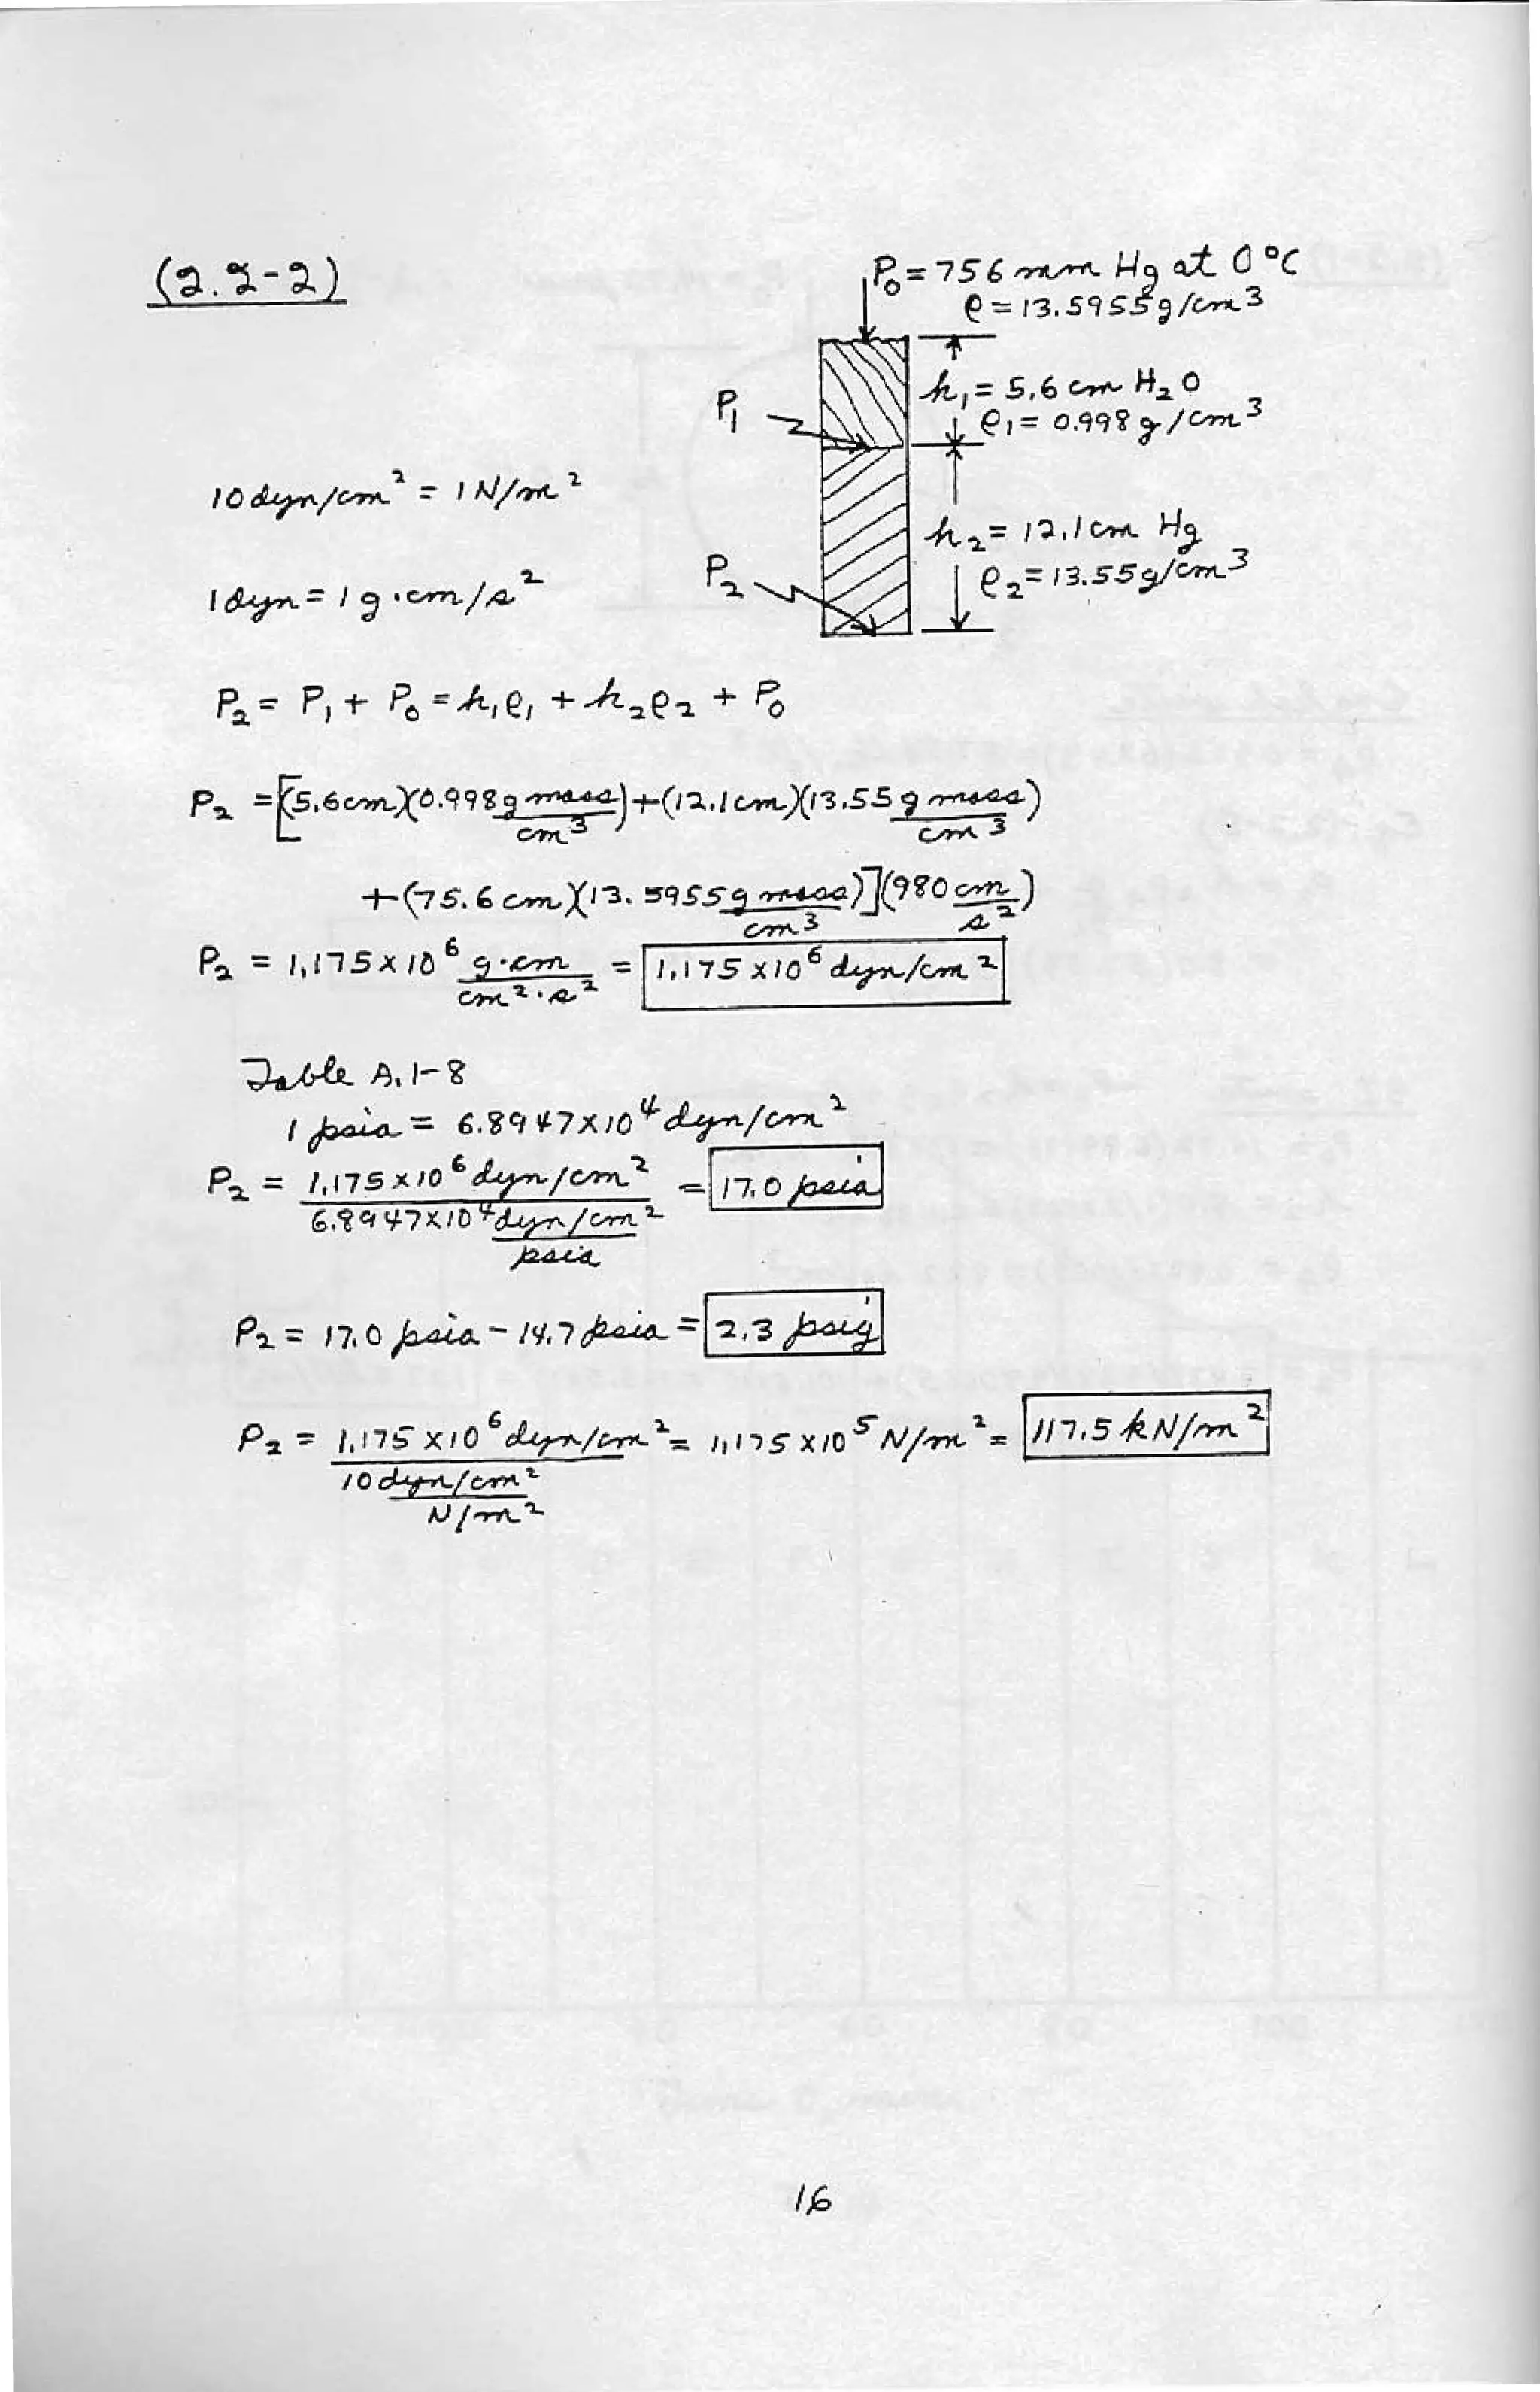 (2.2-2)
P₀ = 756 mm Hg at 0 °C
ρ = 13.5955 g/cm³
h₁ = 5.6 cm H₂O
P₁
ρ₁ = 0.998 g/cm³
10 dyn/cm² = 1 N/m²
h₂ = 12.1 cm Hg
P₂
ρ₂ = 13.55 g/cm³
1 dyn = 1 g·cm/s²
P₂ = P₁ + P₀ = h₁ρ₁ + h₂ρ₂ + P₀
P₂ = [(5.6 cm)(0.998 g mass/cm³) + (12.1 cm)(13.55 g mass/cm³)
+ (75.6 cm)(13.5955 g mass/cm³)](980 cm/s²)
P₂ = 1.175 × 10⁶ g·cm/cm²·s² = 1.175 × 10⁶ dyn/cm²
Table A.1-8
1 psia = 6.8947 × 10⁴ dyn/cm²
P₂ = 1.175 × 10⁶ dyn/cm² = 17.0 psia
6.8947 × 10⁴ dyn/cm²
psia
P₂ = 17.0 psia - 14.7 psia = 2.3 psig
P₂ = 1.175 × 10⁶ dyn/cm² = 1.175 × 10⁵ N/m² = 117.5 kN/m²
10 dyn/cm²
N/m²
16